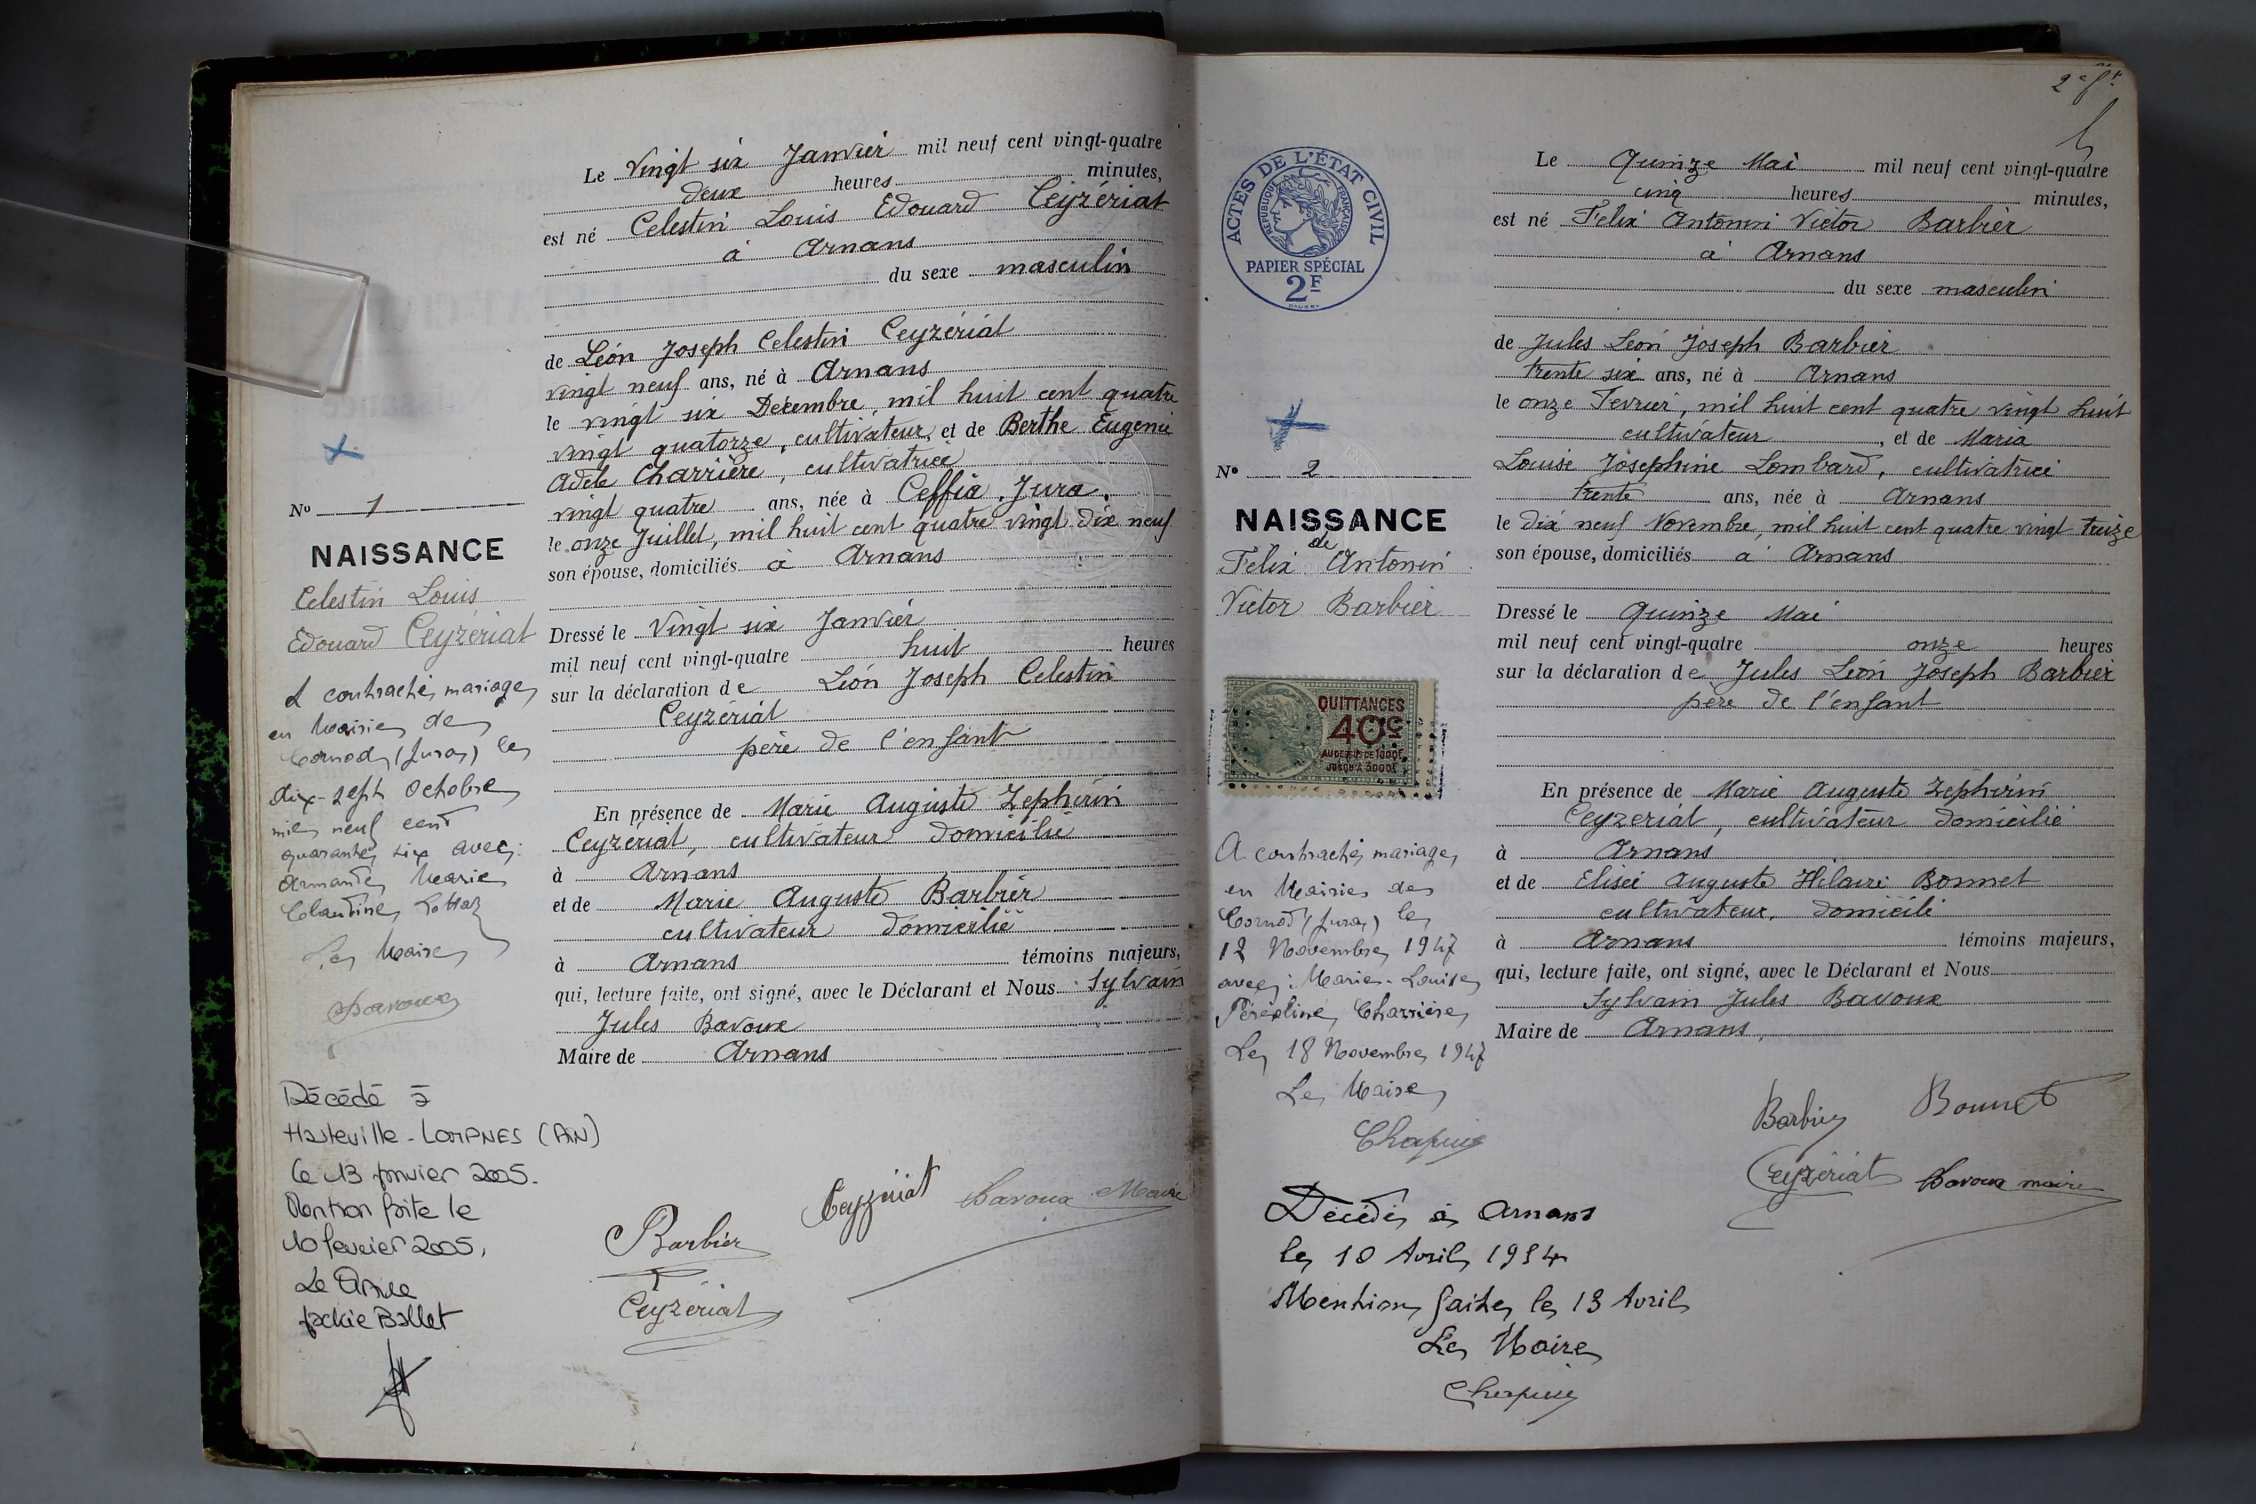 Le Vingt six Janvier mil neuf cent vingt-quatre
deux heures minutes,
est né Celestin Louis Edouard Ceyzériat
à Arnans
du sexe masculin
de Léon Joseph Celestin Ceyzériat
vingt neuf ans, né à Arnans
le vingt six Décembre, mil huit cent quatre
vingt quatorze, cultivateur, et de Berthe Eugenie
Adèle Charrière, cultivatrice
vingt quatre ans, née à Ceffia, Jura,
le onze Juillet, mil huit cent quatre vingt dix neuf
son épouse, domiciliés à Arnans
Dressé le Vingt six Janvier
mil neuf cent vingt-quatre huit heures
sur la déclaration de Léon Joseph Celestin
Ceyzériat
père de l'enfant
En présence de Marie Auguste Zephirin
Ceyzériat, cultivateur domicilié
à Arnans
et de Marie Auguste Barbier
cultivateur domicilié
à Arnans témoins majeurs,
qui, lecture faite, ont signé, avec le Déclarant et Nous Sylvain
Jules Bavoux
Maire de Arnans
Barbier
Ceyzériat
Bavoux Maire
Ceyzériat
No 1
NAISSANCE
Celestin Louis
Edouard Ceyzériat
A contracté mariage
en Mairie de
Cornod (Jura) le
dix-sept Octobre
mil neuf cent
quarante six avec:
Armande Marie
Claudine
Le Maire
Bavoux
Décédé à
Hauteville-LOMPNES (AIN)
le 13 janvier 2005.
Mention faite le
10 février 2005,
Le Maire
Jackie Ballet
2e ft
ACTES DE L'ÉTAT CIVIL
RÉPUBLIQUE FRANÇAISE
PAPIER SPÉCIAL
2F
Le Quinze Mai mil neuf cent vingt-quatre
cinq heures minutes,
est né Felix Antonin Victor Barbier
à Arnans
du sexe masculin
de Jules Léon Joseph Barbier
trente six ans, né à Arnans
le onze Fevrier, mil huit cent quatre vingt huit
cultivateur, et de Maria
Louise Josephine Lombard, cultivatrice
trente ans, née à Arnans
le dix neuf Novembre, mil huit cent quatre vingt treize
son épouse, domiciliés a Arnans
Dressé le Quinze Mai
mil neuf cent vingt-quatre onze heures
sur la déclaration de Jules Léon Joseph Barbier
père de l'enfant
En présence de Marie Auguste Zephirin
Ceyzeriat, cultivateur domicilié
à Arnans
et de Elisée Auguste Hilaire Bonnet
cultivateur, domicilié
à Arnans témoins majeurs,
qui, lecture faite, ont signé, avec le Déclarant et Nous
Sylvain Jules Bavoux
Maire de Arnans,
Barbier
Bonnet
Ceyzériat
Bavoux maire
No 2
NAISSANCE
de
Felix Antonin
Victor Barbier
QUITTANCES
40c
AU DESSUS DE 1000F
JUSQU'À 3000F
A contracté mariage
en Mairie de
Cornod (Jura) le
12 Novembre 1947
avec: Marie-Louise
Charrière
Le 18 Novembre 1947
Le Maire
Chapuis
Décédé à Arnans
le 10 Avril 1954
Mention faite le 13 Avril
Le Maire
Chapuis